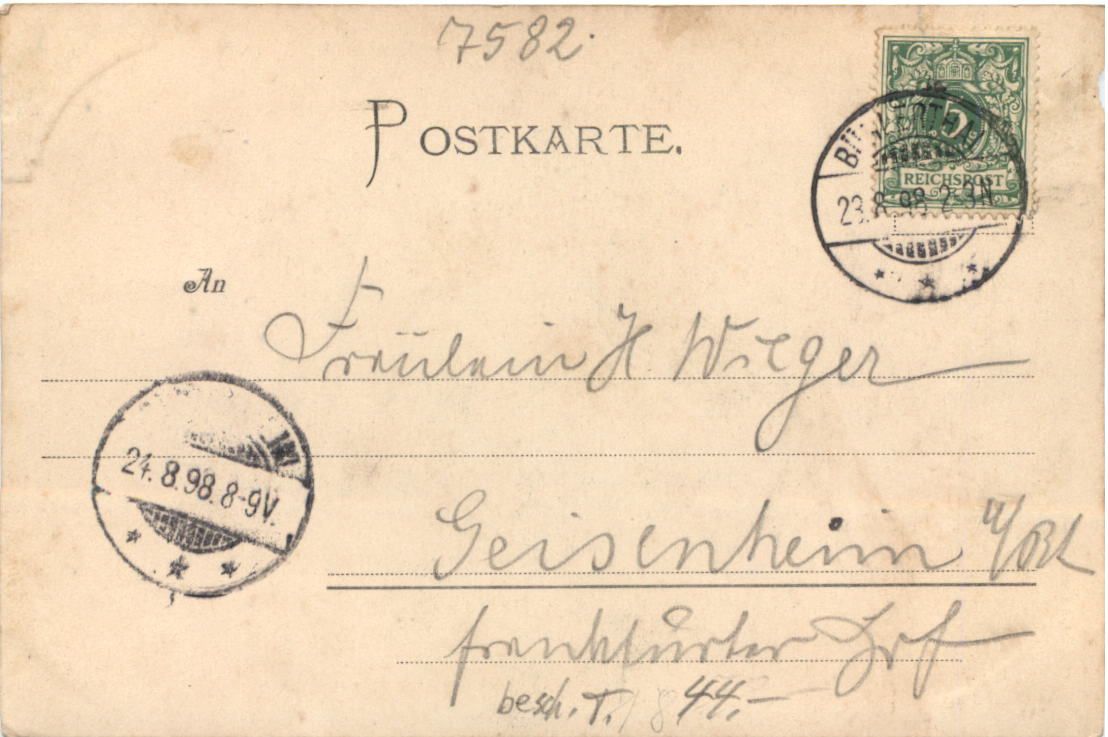 7582.
POSTKARTE.
5
REICHSPOST
23.8.98.2-3N.
An
Fräulein H. Wilger
24.8.98.8-9V.
Geisenheim a/Rh
Frankfurter Hof
besch. T. 44.-